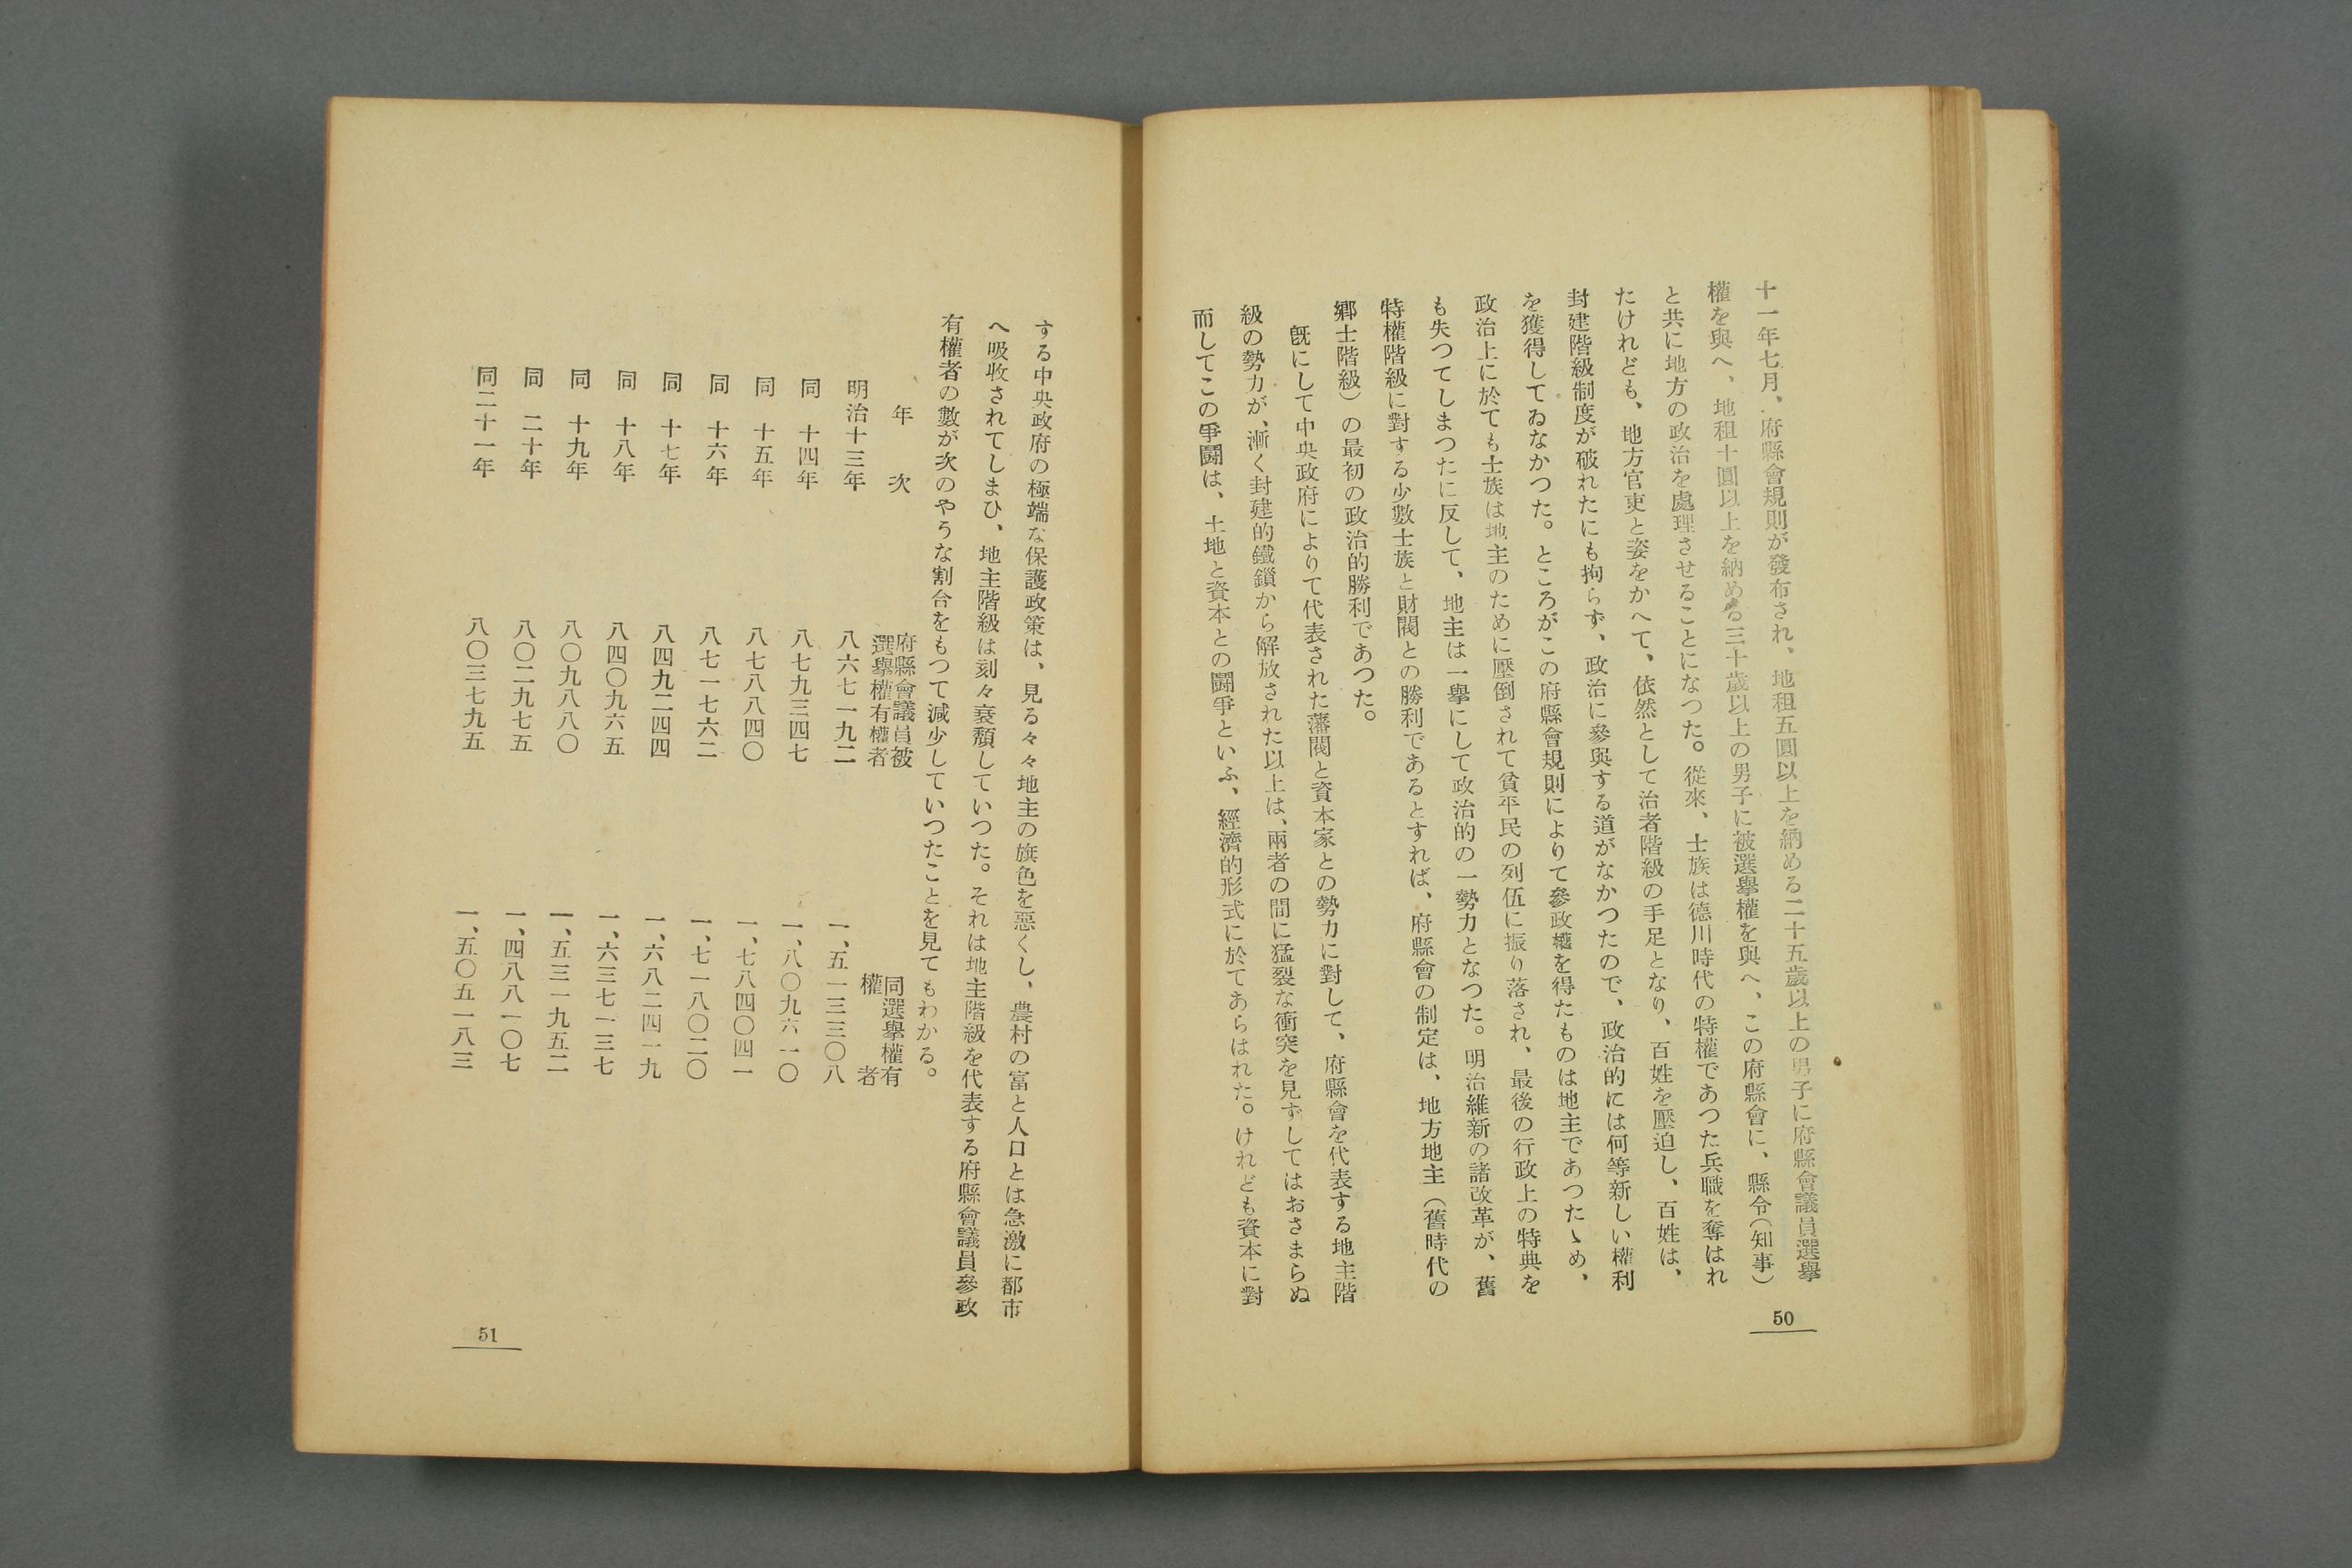 十一年七月、府縣會規則が發布され、地租五圓以上を納める二十五歲以上の男子に府縣會議員選擧
權を與へ、地租十圓以上を納める三十歲以上の男子に被選擧權を與へ、この府縣會に、縣令（知事）
と共に地方の政治を處理させることになつた。從來、士族は德川時代の特權であつた兵職を奪はれ
たけれども、地方官吏と姿をかへて、依然として治者階級の手足となり、百姓を壓迫し、百姓は、
封建階級制度が破れたにも拘らず、政治に參與する道がなかつたので、政治的には何等新しい權利
を獲得してゐなかつた。ところがこの府縣會規則によりて參政權を得たものは地主であつたゝめ、
政治上に於ても士族は地主のために壓倒されて貧平民の列伍に振り落され、最後の行政上の特典を
も失つてしまつたに反して、地主は一擧にして政治的の一勢力となつた。明治維新の諸改革が、舊
特權階級に對する少數士族と財閥との勝利であるとすれば、府縣會の制定は、地方地主（舊時代の
鄕士階級）の最初の政治的勝利であつた。
旣にして中央政府によりて代表された藩閥と資本家との勢力に對して、府縣會を代表する地主階
級の勢力が、漸く封建的鐵鎖から解放された以上は、兩者の間に猛裂な衝突を見ずしてはおさまらぬ
而してこの爭鬪は、土地と資本との鬪爭といふ、經濟的形式に於てあらはれた。けれども資本に對
50
する中央政府の極端な保護政策は、見る々々地主の旗色を惡くし、農村の富と人口とは急激に都市
へ吸收されてしまひ、地主階級は刻々衰頽していつた。それは地主階級を代表する府縣會議員參政
有權者の數が次のやうな割合をもつて減少していつたことを見てもわかる。
年　次　府縣會議員被選擧權有權者　同選擧權有權者
明治十三年　八六七一九二　一、五一三三〇八
同　十四年　八七九三四七　一、八〇九六一〇
同　十五年　八七八八四〇　一、七八四〇四一
同　十六年　八七一七六二　一、七一八〇二〇
同　十七年　八四九二四四　一、六八二四一九
同　十八年　八四〇九六五　一、六三七一三七
同　十九年　八〇九八八〇　一、五三一九五二
同　二十年　八〇二九七五　一、四八八一〇七
同二十一年　八〇三七九五　一、五〇五一八三
51